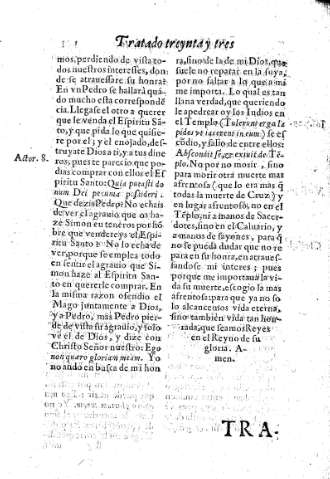 Tratado treynta y tres
mos, perdiendo de vista to-
dos nuestros interesses, don-
de se atrauessare su honra?
En vn Pedro se hallarà quã-
do mucho esta correspondẽ-
cia. Llegase el otro a querer
que se venda el Espiritu Sã-
to, y que pida lo que quisie-
re por el; y el enojado, des-
truyate Dios a ti, y a tus dine
ros, pues te parecio que po-
dias comprar con ellos el Es
Actor. 8.
piritu Santo: Quia putasti do
num Dei pecunia possideri.
Que dezis Pedro? No echais
de ver el agrauio que os ha-
zẽ Simon en teneros por hõ
bre que vendereys el Espi-
ritu Santo? No lo echa de
ver, porque se emplea todo
en sentir el agrauio que Si-
mon haze al Espiritu San-
to en quererle comprar. En
la misma razon ofendio el
Mago juntamente a Dios,
y a Pedro, mas Pedro pier-
de de vista su agrauio, y solo
vè el de Dios, y dize con
Christo Señor nuestro: Ego
non quæro gloriam meam. Yo
no ando en busca de mi hon
ra, sino de la de mi Dios, que
suele no reparar en la suya,
por no faltar a lo que a mi
me importa. Lo qual es tan
llana verdad, que queriendo
le apedrear oy los Iudios en
el Templo (Tulerunt ergo la
pides vt iacerent in eum) se es
cõdio, y salio de entre ellos:
Abscondit se, & exiuit de Tẽ-
plo. No por no morir, sino
para morir otra muerte mas
afrentosa (que lo era mas q̃
todas la muerte de Cruz) y
en lugar afrentoso, no en el
Tẽplo, ni a manos de Sacer-
dotes, sino en el Caluario, y
a manos de sayones, para q̃
no se pueda dudar que no re
para en su honra, en atraues-
sandose mi interes; y pues
porque me importaua la vi-
da su muerte, escogio la mas
afrentosa: para que ya no so-
lo alcancemos vida eterna,
sino tambien vida tan hon-
rada, que seamos Reyes
en el Reyno de su
gloria. A-
men.
TRA-